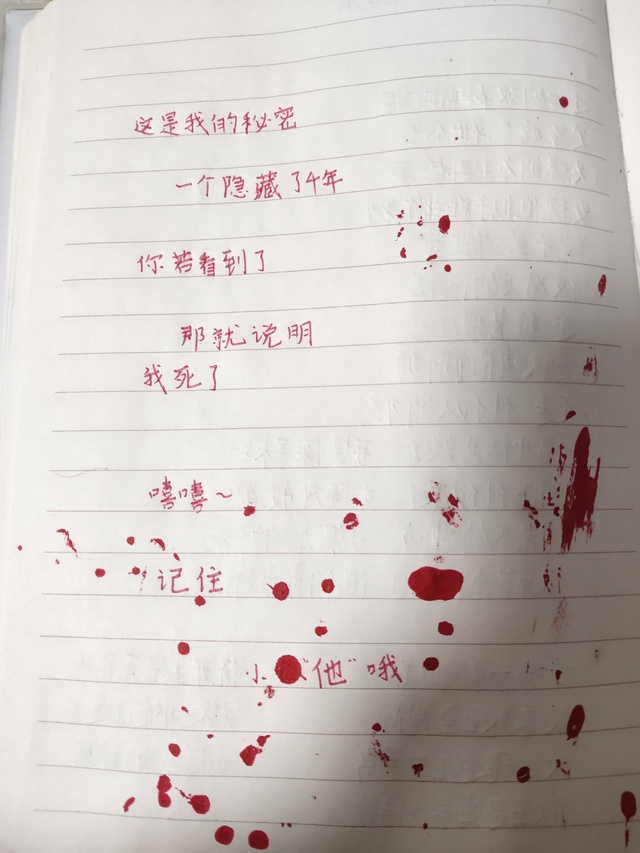 这是我的秘密
一个隐藏了4年
你若看到了
那就说明
我死了
嘻嘻~
记住
小 "他"哦